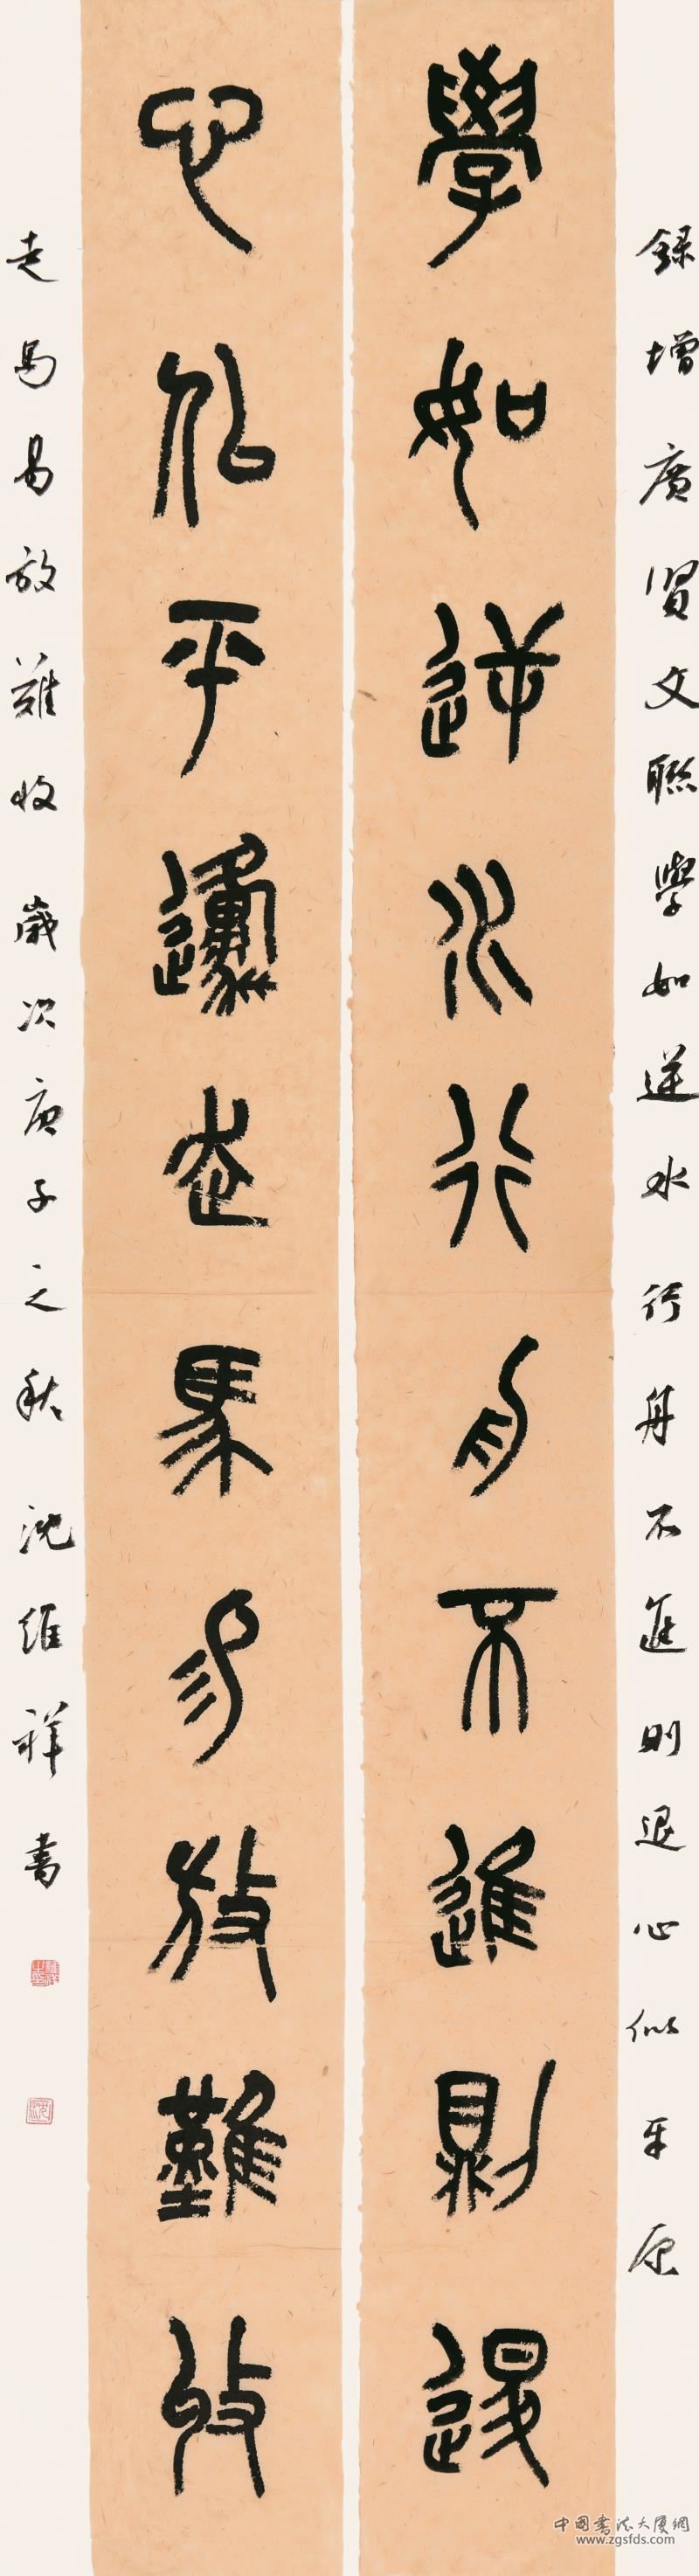 錄增廣贤文聯學如逆水行舟不進則退心似平原
學如逆水行舟不進則退
心似平邍走馬易放難收
走馬易放難收歲次庚子之秋沈維祥書
中国書法大厦網
www.zgsfds.com